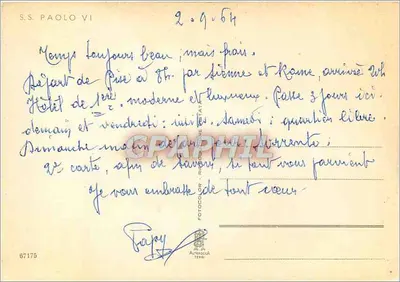 S.S. PAOLO VI
2.9.64
Temps toujours beau, mais frais.
Départ de Pise à 8h. par Sienne et Rome, arrivée 20h
Hôtel de 1ère, moderne et luxueux. Passe 3 jours ici.
demain et vendredi: visites. Samedi: quartier libre.
Dimanche matin départ pour Sorrente.
2e carte, afin de savoir, si tout vous parvient
Je vous embrasse de tout cœur
Papy
CARTHAPHILIA
87175